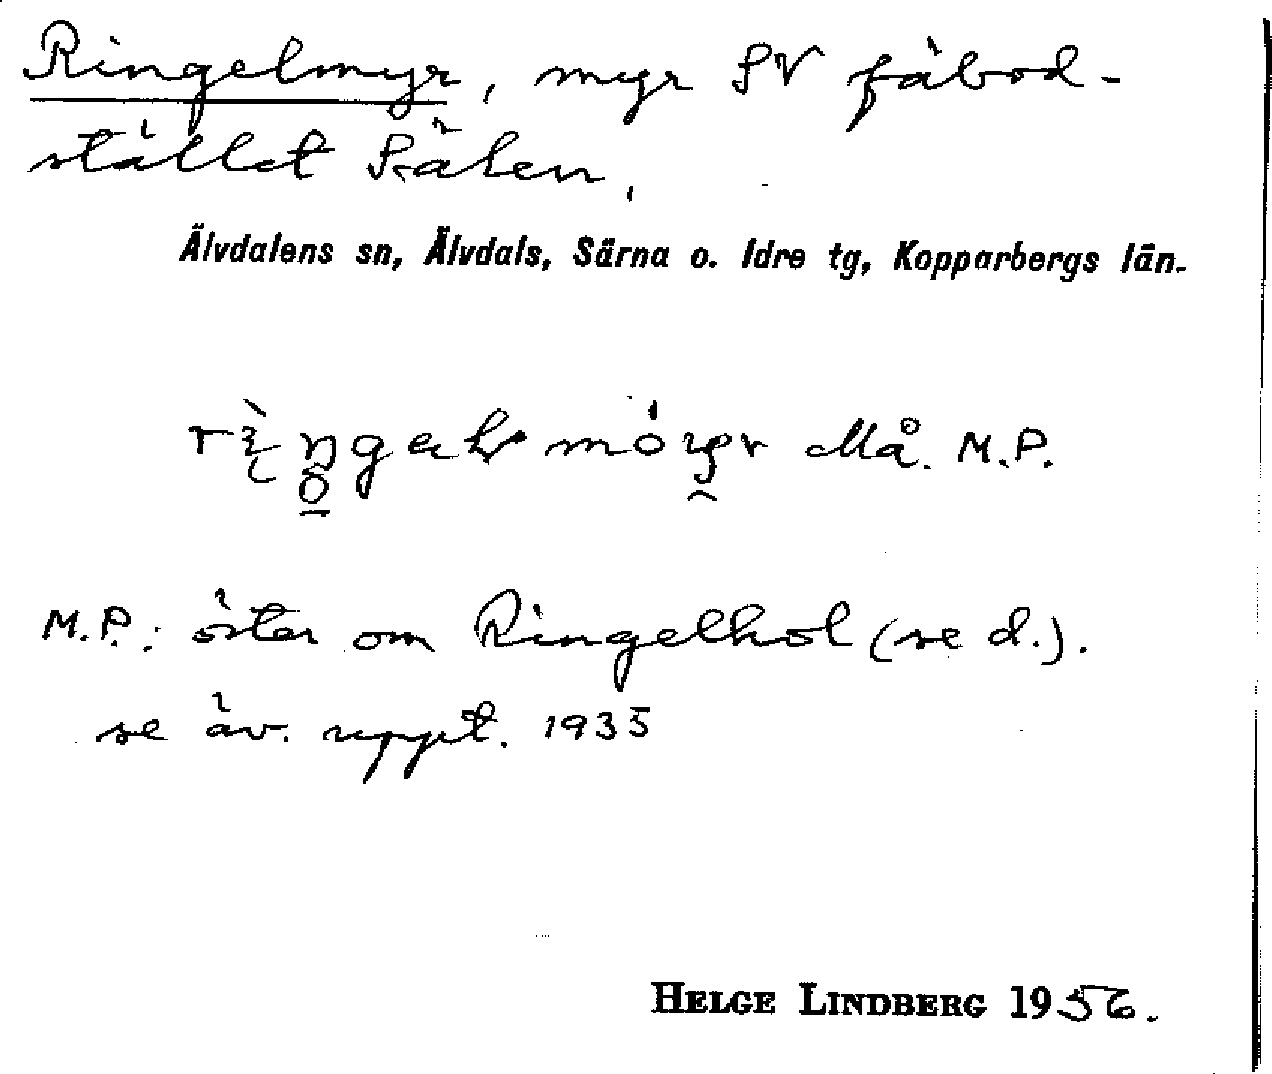 Ringelmyr, myr SV fäbod-
stället Kälen.
Älvdalens sn, Älvdals, Särna o. Idre tg, Kopparbergs län.
Må. M.P.
M.P.: öster om Ringelhol (se d.).
se äv. uppt. 1935
HELGE LINDBERG 1956.